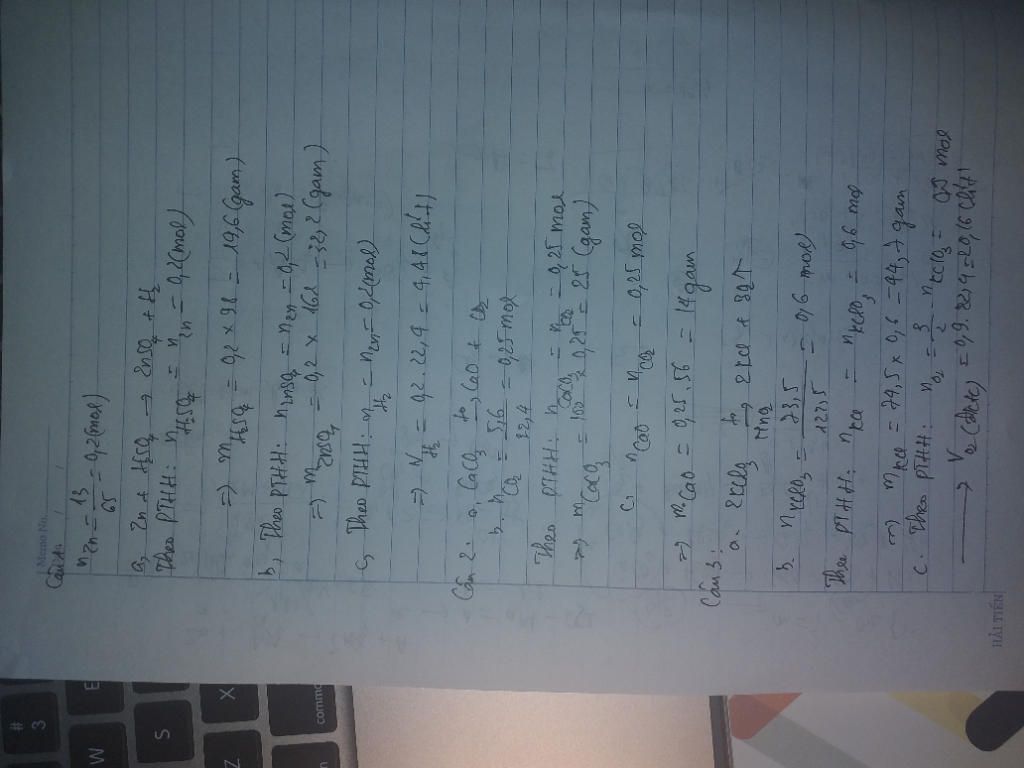 Memo No.
Câu 1:
n Zn = 13/65 = 0,2 (mol)
a, Zn + H2SO4 → ZnSO4 + H2
Theo PTHH: n H2SO4 = n Zn = 0,2 (mol)
=> m H2SO4 = 0,2 x 98 = 19,6 (gam)
b, Theo PTHH: n ZnSO4 = n Zn = 0,2 (mol)
=> m ZnSO4 = 0,2 x 161 = 32,2 (gam)
c, Theo PTHH: n H2 = n Zn = 0,2 (mol)
=> V H2 = 0,2 . 22,4 = 4,48 (lít)
Câu 2: a, CaCO3 to→ CaO + CO2
b, n CO2 = 5,6/22,4 = 0,25 mol
Theo PTHH: n CaCO3 = n CO2 = 0,25 mol
=> m CaCO3 = 100 x 0,25 = 25 (gam)
c, n CaO = n CO2 = 0,25 mol
=> m CaO = 0,25 . 56 = 14 gam
Câu 3:
a. 2KClO3 to→ MnO2 2KCl + 3O2↑
b. n KClO3 = 73,5/122,5 = 0,6 mol
Theo PTHH: n KCl = n KClO3 = 0,6 mol
=> m KCl = 74,5 x 0,6 = 44,7 gam
c. Theo PTHH: n O2 = 3/2 . n KClO3 = mol
→ V O2 (đktc) = 0,9 . 22,4 = 20,16 lít
HẢI TIẾN
# 3
W
E
S
X
Z
comma